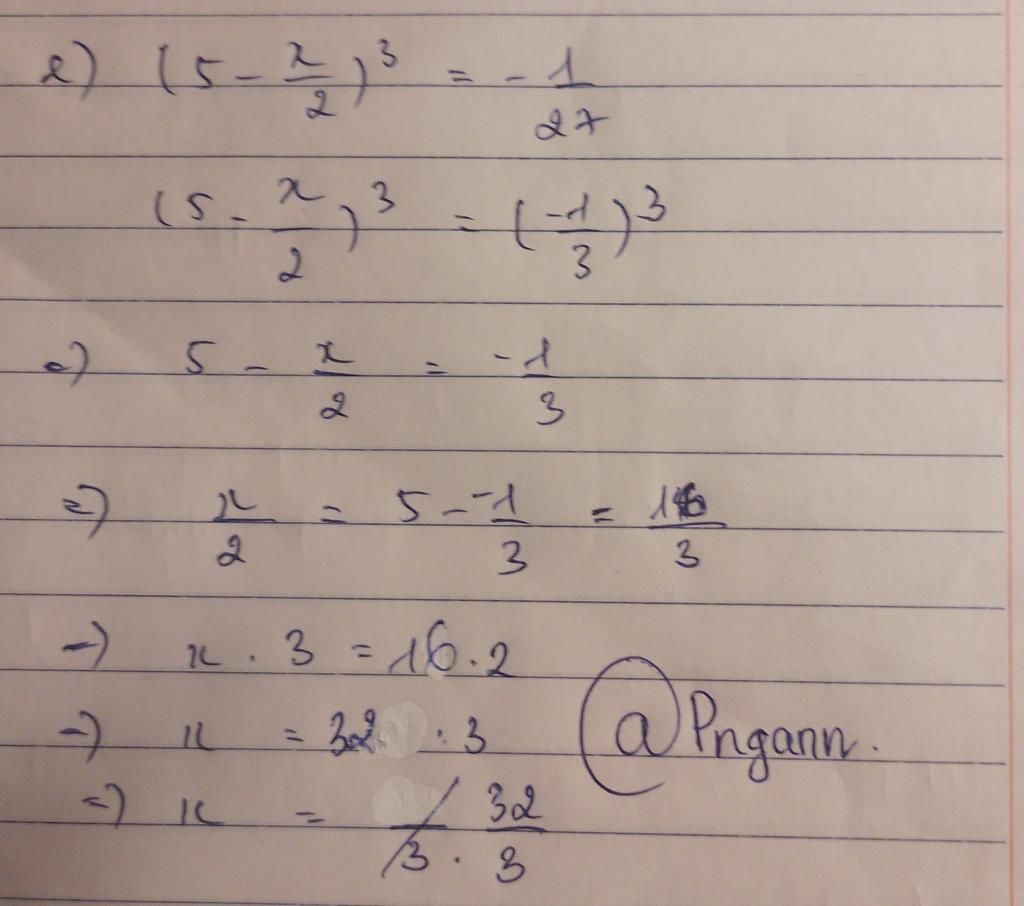 e) (5 - x/2)^3 = - 1/27
(5 - x/2)^3 = (-1/3)^3
=) 5 - x/2 = -1/3
=) x/2 = 5 - -1/3 = 16/3
=) x . 3 = 16 . 2
=) x = 32 : 3
=) x = 32/3
@Pngann.